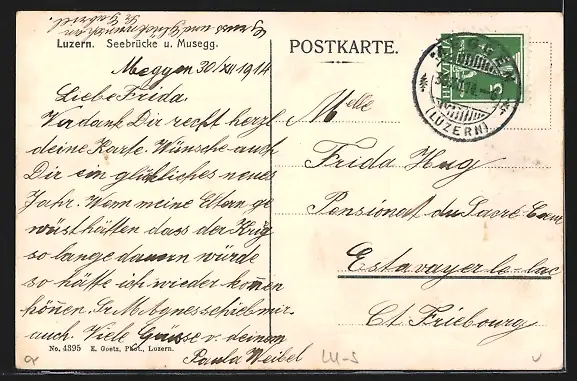 Gruss und Glückwunsch an
Luzern. Seebrücke u. Musegg.
Meggen 30/XII 1914
Liebe Frida.
Verdank Dir recht herzl
deine Karte. Wünsche auch
Dir ein glükliches neues
Jahr. Wenn meine Eltern ge
wüsst hätten dass der Krig
so lange dauern würde
so hätte ich wieder konen
können. Sr. schieb mir
auch. Viele Grüsse v. deinem
Paula Weibel
No. 4395 E. Goetz, Phot., Luzern.
POSTKARTE.
MEGGEN
(LUZERN)
HELVETIA
5
Melle
Frida Hug
Pensionat du Sacré Coeur
Estavayer-le-lac
Ct. Friebourg
LU-S